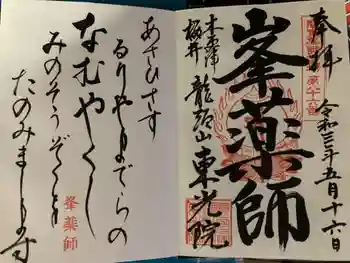 奉拝
令和三年五月十六日
峯薬師
木更津
桜井
龍頭山東光院
あさひさす
るりやまでらの
なむやくし
みのそうぞくを
たのみまします
峯薬師